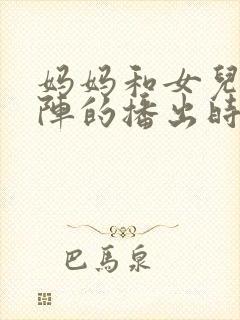 妈妈和女兒
陣的播出時
巴馬泉